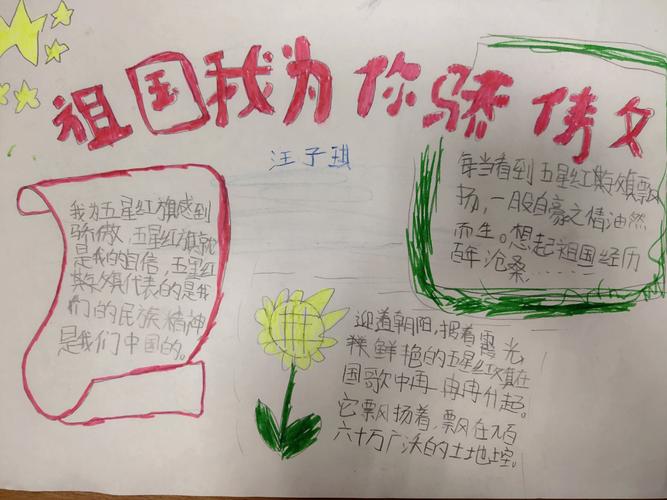 祖国我为你骄傲
汪子琪
我为五星红旗感到
骄傲，五星红旗就
是我的自信，五星红
旗代表的是我
们的民族精神
是我们中国的。
每当看到五星红旗飘
扬，一股自豪之情油然
而生。想起祖国经历
百年沧桑……
迎着朝阳，披着霞光，
鲜艳的五星红旗在
国歌中再一冉冉升起。
它飘扬着，飘在九百
六十万广沃的土地上空。